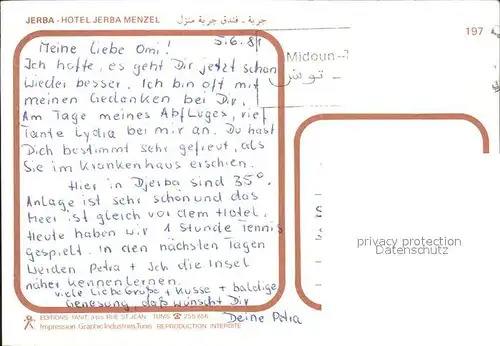 JERBA - HOTEL JERBA MENZEL جربة - فندق جربة منزل
197
Meine liebe Omi! 5.6.81
Midoun-
تونس
Ich hoffe, es geht Dir jetzt schon
wieder besser. Ich bin oft mit
meinen Gedanken bei Dir.
Am Tage meines Abfluges, rief
Tante Lydia bei mir an. Du hast
Dich bestimmt sehr gefreut, als
Sie im Krankenhaus erschien.
Hier in Djerba sind 35°.
Anlage ist sehr schön und das
Meer ist gleich vor dem Hotel.
Heute haben wir 1 Stunde Tennis
gespielt. In den nächsten Tagen
werden Petra + Ich die Insel
näher kennenlernen.
viele liebe Grüße + Küsse + baldige
Genesung, daß wünscht Dir
Deine Petra
privacy protection
Datenschutz
EDITIONS TANIT, RUE ST JEAN TUNIS ☎ 255 656
Impression Graphic Industries, Tunis REPRODUCTION INTERDITE